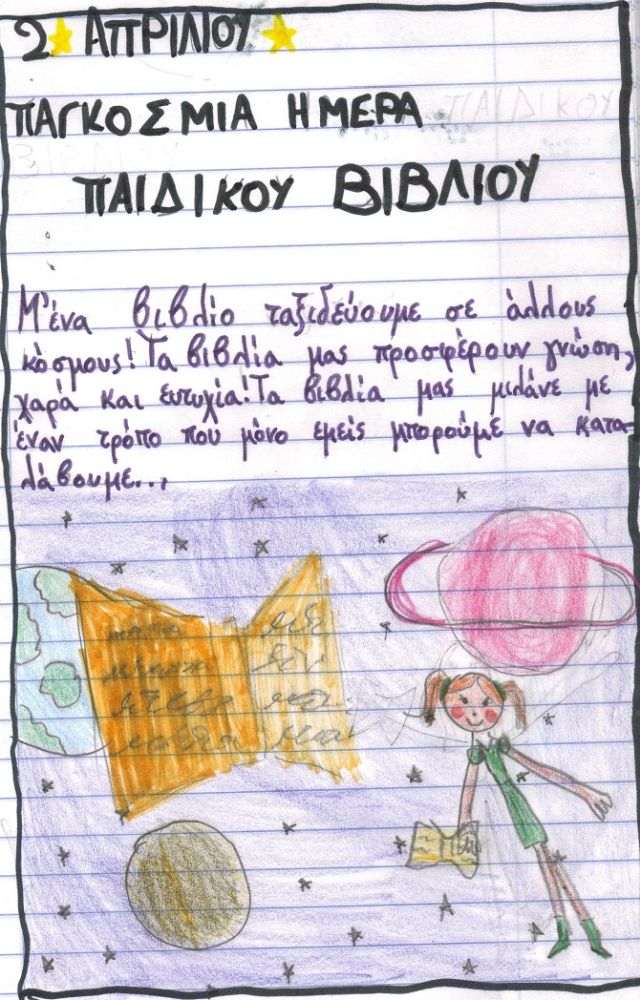 2 ΑΠΡΙΛΙΟΥ
ΠΑΓΚΟΣΜΙΑ ΗΜΕΡΑ
ΠΑΙΔΙΚΟΥ ΒΙΒΛΙΟΥ
Μ'ένα βιβλίο ταξιδεύουμε σε άλλους
κόσμους! Τα βιβλία μας προσφέρουν γνώση,
χαρά και ευτυχία! Τα βιβλία μας μιλάνε με
έναν τρόπο που μόνο εμείς μπορούμε να κατα-
λάβουμε...